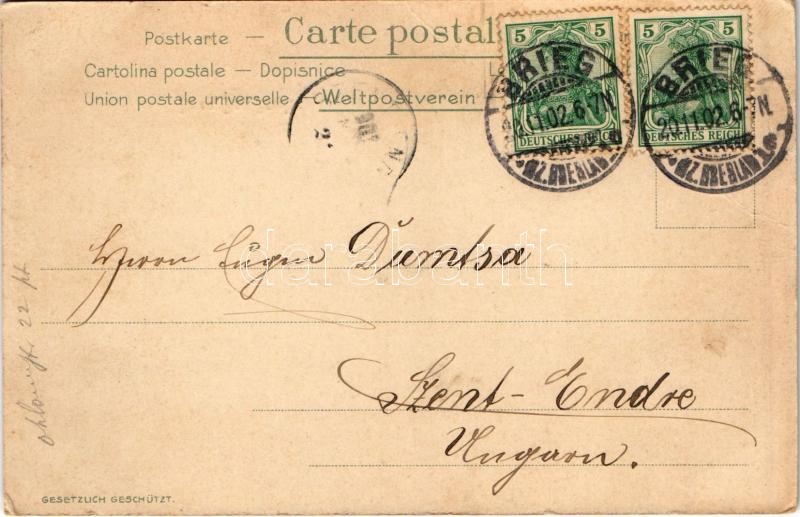 Postkarte — Carte postale
Cartolina postale — Dopisnice
Union postale universelle — Weltpostverein
5 5
5 5
DEUTSCHES REICH
DEUTSCHES REICH
BRIEG
.11.02.6-7N.
*(BZ. BRESLAU)
BRIEG
28.11.02.6-7N.
*(BZ. BRESLAU)
Herrn Eugen Dumtsa
Szent-Endre
Ungarn.
22 pt
GESETZLICH GESCHÜTZT.
darabanth